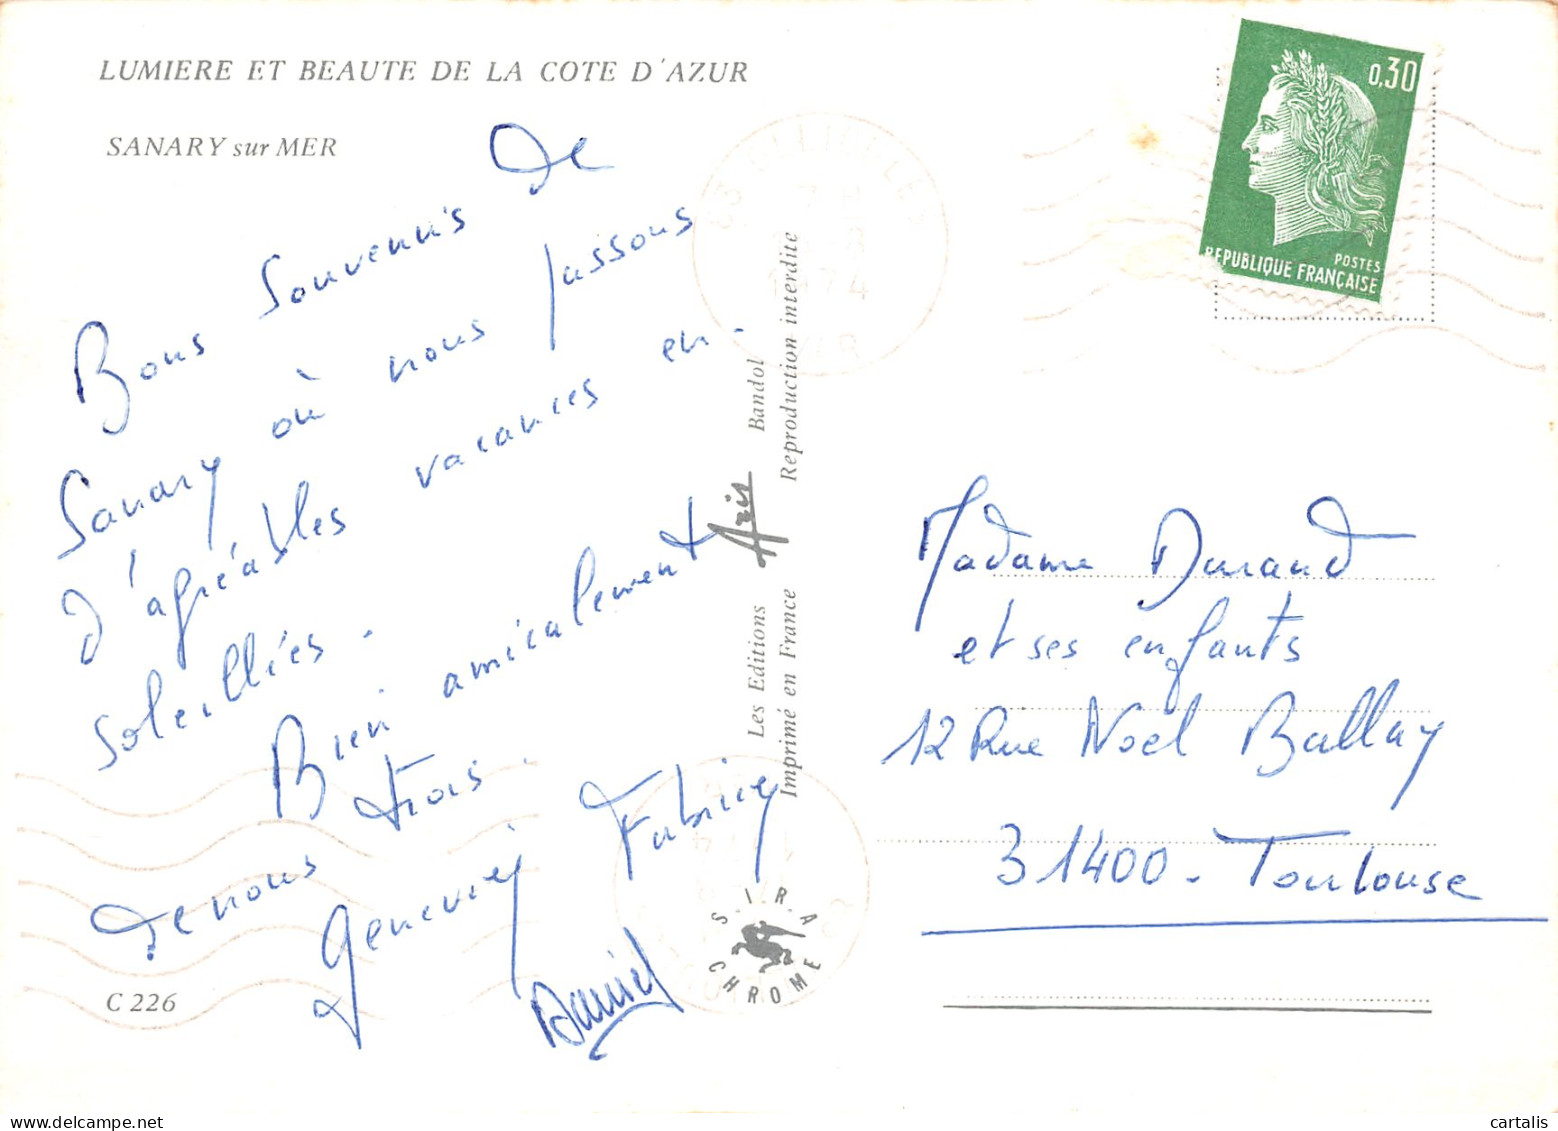 LUMIERE ET BEAUTE DE LA COTE D'AZUR
SANARY sur MER
Bons souvenirs de
Sanary où nous passons
d'agréables vacances en-
soleillées.
Bien amicalement
de nous trois.
Geneviev Fabrice
Daniel
C 226
Les Editions Aris Bandol
Imprimé en France Reproduction interdite
S.I.R.A.
CHROME
83 OLLIOULES
1974
VAR
0,30
POSTES
REPUBLIQUE FRANÇAISE
Madame Durand
et ses enfants
12 Rue Noël Ballay
31400 - Toulouse
cartalis